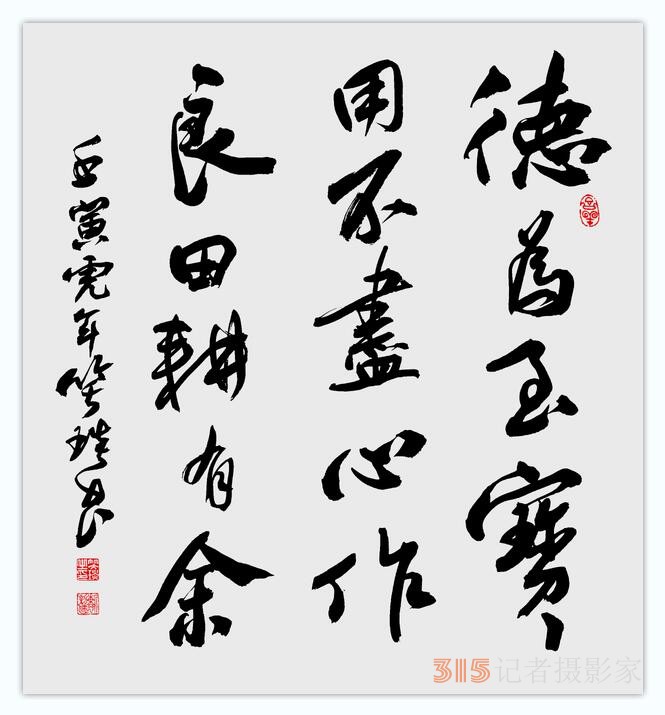 德為至寶
用不盡心作
良田耕有余
壬寅虎年
315记者摄影家